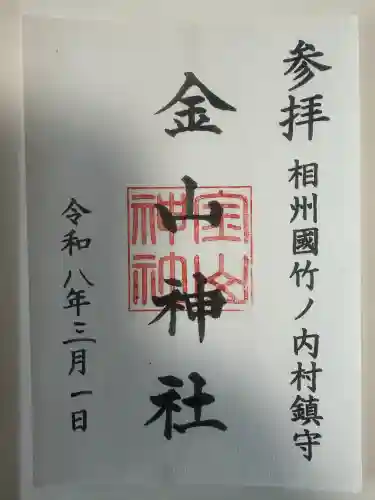 参拝 相州國竹ノ内村鎮守
金山神社
金山神社
令和八年三月一日